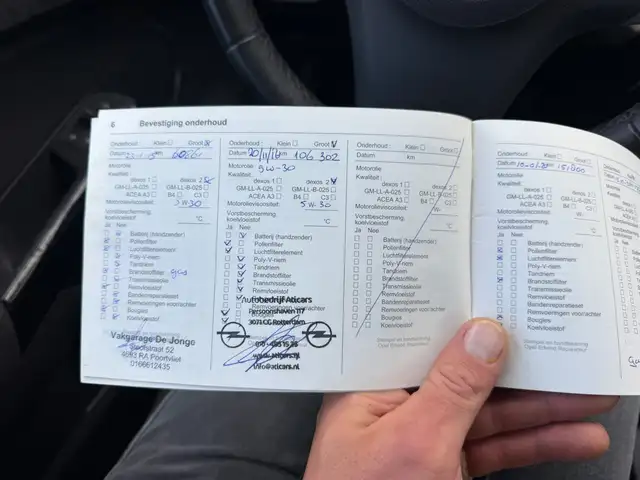 6 Bevestiging onderhoud
Onderhoud: Klein Groot
Datum km
Motorolie
Kwaliteit:
dexos 1 dexos 2
GM-LL-A-025 GM-LL-B-025
ACEA A3 B4 C3
Motorolieviscositeit: 5 W-30
Vorstbescherming
koelvloeistof °C
Ja Nee
Batterij (handzender)
Pollenfilter
Luchtfilterelement
Poly-V-riem
Tandriem
Brandstoffilter
Transmissieolie
Remvloeistof
Bandenreparatieset
Remvoeringen voor/achter
Bougies
Koelvloeistof
Vakgarage De Jonge
4683 RA Poortvliet
0166612435
Onderhoud: Klein Groot
Datum 20/11/16 km 106 302
Motorolie 5W-30
Kwaliteit:
dexos 1 dexos 2
GM-LL-A-025 GM-LL-B-025
ACEA A3 B4 C3
Motorolieviscositeit: 5 W-30
Vorstbescherming
koelvloeistof °C
Ja Nee
Batterij (handzender)
Pollenfilter
Luchtfilterelement
Poly-V-riem
Tandriem
Brandstoffilter
Transmissieolie
Remvloeistof
Autobedrijf Aticars
Persoonshaven 117
3071 CG Rotterdam
www.aticars.nl
info@aticars.nl
Onderhoud: Klein Groot
Datum km
Motorolie
Kwaliteit:
dexos 1 dexos 2
GM-LL-A-025 GM-LL-B-025
ACEA A3 B4 C3
Motorolieviscositeit: W-
Vorstbescherming
koelvloeistof °C
Ja Nee
Batterij (handzender)
Pollenfilter
Luchtfilterelement
Poly-V-riem
Tandriem
Brandstoffilter
Transmissieolie
Remvloeistof
Bandenreparatieset
Remvoeringen voor/achter
Bougies
Koelvloeistof
Stempel en handtekening
Opel Erkend Reparateur
Onderhoud: Klein Groot
Datum km
Motorolie
Kwaliteit:
dexos 1 dexos 2
GM-LL-A-025 GM-LL-B-025
ACEA A3 B4 C3
Motorolieviscositeit: W-
Vorstbescherming
koelvloeistof °C
Ja Nee
Batterij (handzender)
Pollenfilter
Luchtfilterelement
Poly-V-riem
Tandriem
Brandstoffilter
Transmissieolie
Remvloeistof
Bandenreparatieset
Remvoeringen voor/achter
Bougies
Koelvloeistof
Stempel en handtekening
Opel Erkend Reparateur